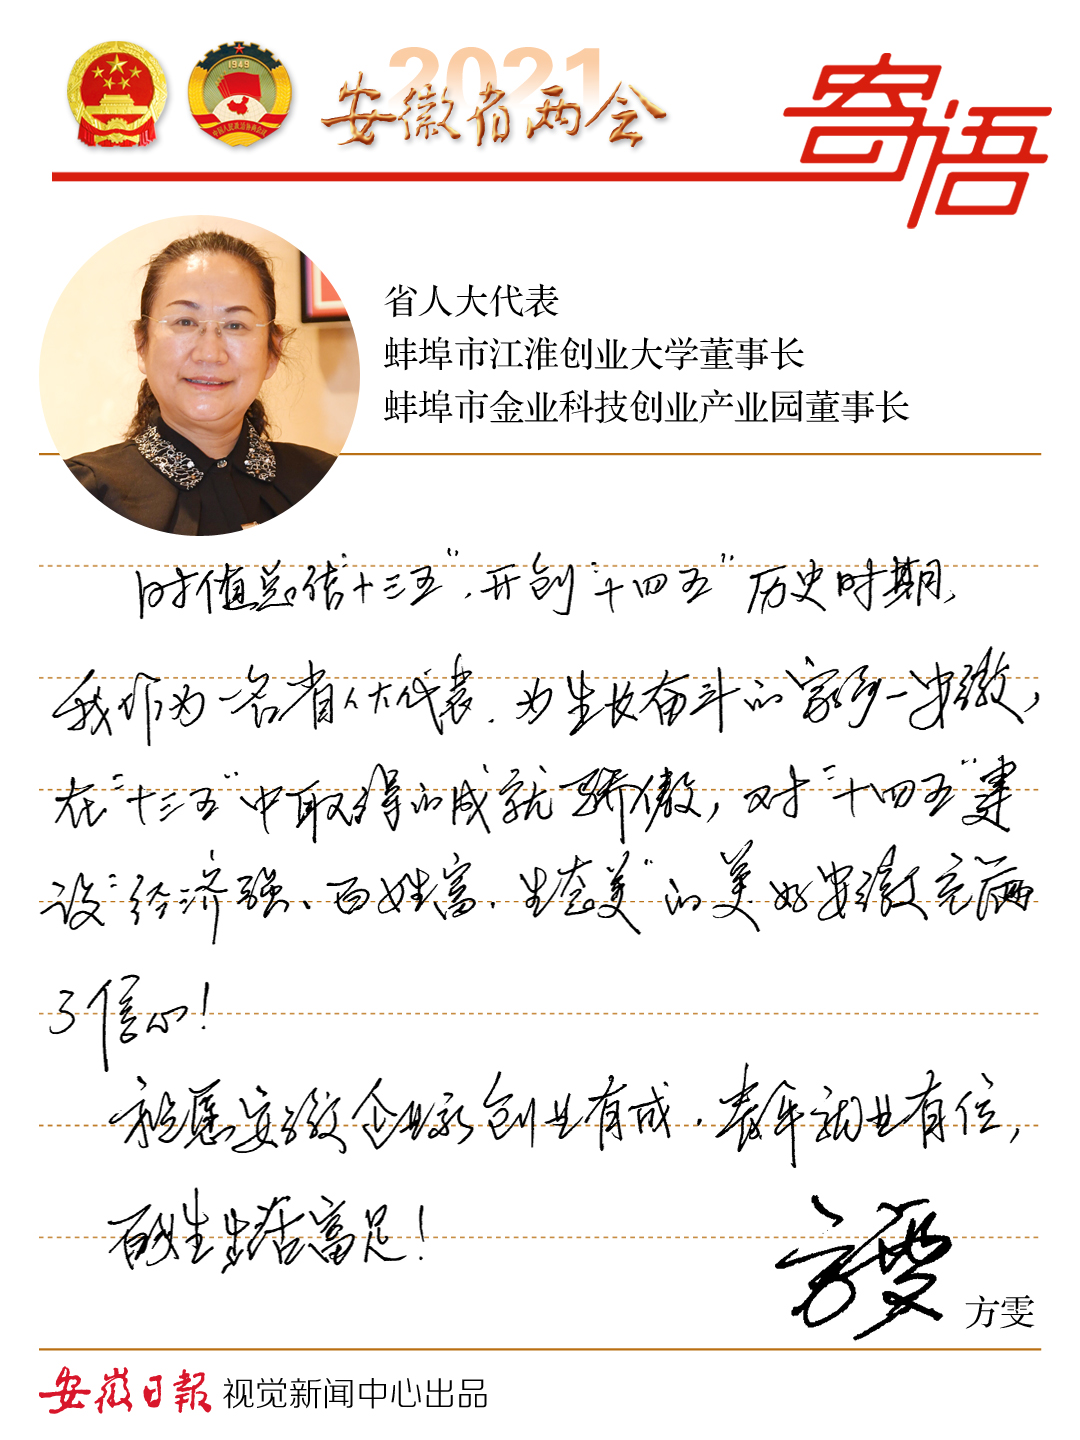 2021
安徽省两会
寄语
1949
中国人民政治协商会议
省人大代表
蚌埠市江淮创业大学董事长
蚌埠市金业科技创业产业园董事长
时值总结“十三五”，开创“十四五”历史时期，
我作为一名省人大代表，为生长奋斗的家乡—安徽，
在“十三五”中取得的成就骄傲，对“十四五”建
设“经济强、百姓富、生态美”的美好安徽充满
了信心！
祝愿安徽企业家创业有成，青年就业有位，
百姓生活富足！
方雯
方雯
安徽日報 视觉新闻中心出品